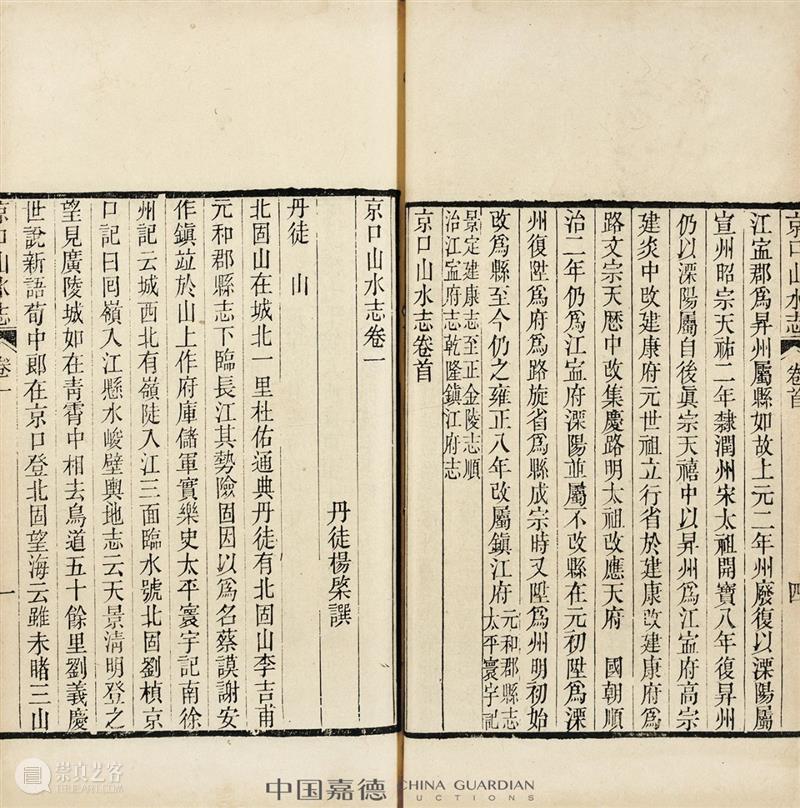 京口山水志 卷首 四
江寍郡爲昇州屬縣如故上元二年州廢復以溧陽屬
宣州昭宗天祐二年隸潤州宋太祖開寶八年復昇州
仍以溧陽屬自後眞宗天禧中以昇州爲江寍府高宗
建炎中改建康府元世祖立行省於建康改建康府爲
路文宗天歷中改集慶路明太祖改應天府 國朝順
治二年仍爲江寍府溧陽並屬不改縣在元初陞爲溧
州復陞爲府爲路旋省爲縣成宗時又陞爲州明初始
改爲縣至今仍之雍正八年改屬鎮江府元和郡縣志太平寰宇記
景定建康志至正金陵志順
治江寍府志乾隆鎮江府志
京口山水志卷首
京口山水志卷一
丹徒楊棨譔
丹徒 山
北固山在城北一里杜佑通典丹徒有北固山李吉甫
元和郡縣志下臨長江其勢險固因以爲名蔡謨謝安
作鎮竝於山上作府庫儲軍實樂史太平寰宇記南徐
州記云城西北有嶺陡入江三面臨水號北固劉楨京
口記曰回嶺入江懸水峻壁輿地志云天景清明登之
望見廣陵城如在靑霄中相去鳥道五十餘里劉義慶
世說新語荀中郎在京口登北固望海云雖未睹三山
京口山水志 卷一 一
崇真艺客
中国嘉德 CHINA GUARDIAN
AUCTIONS